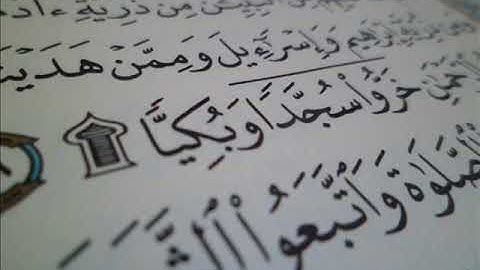 ٱلنَّبِيِّـۧنَ مِن ذُرِّيَّةِ ءَادَ
ذُرِّيَّةِ إِبْرَٰهِيمَ وَإِسْرَٰٓءِيلَ وَمِمَّنْ هَدَيْنَ
خَرُّوا۟ سُجَّدًا وَبُكِيًّا ۩
ٱلصَّلَوٰةَ وَٱتَّبَعُوا۟ ٱلشَّ